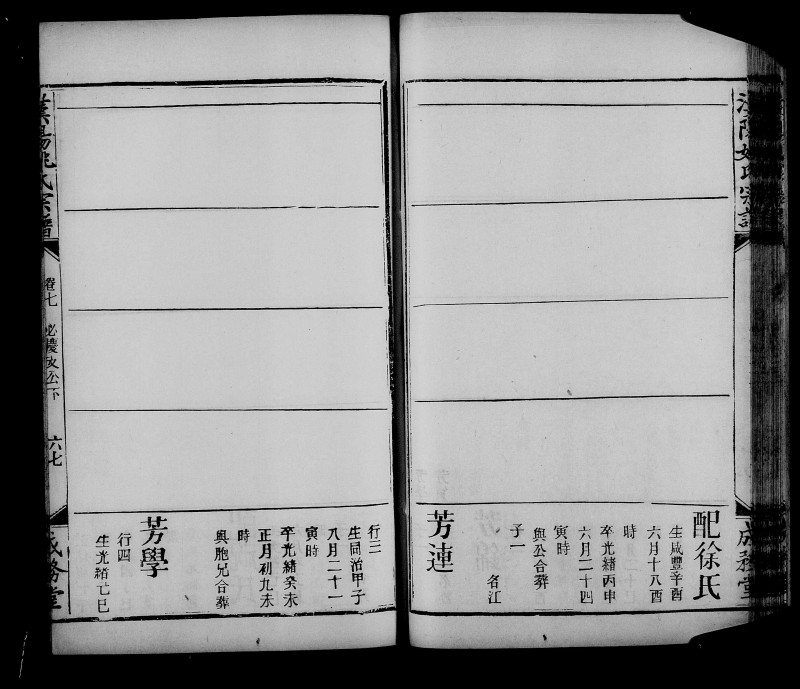 漢陽姚氏宗譜
成務堂
配徐氏
生咸豐辛酉
六月十八酉
時
卒光緒丙申
六月二十四
寅時
與公合葬
子一
名江
芳連
行三
生同治甲子
八月二十一
寅時
卒光緒癸未
正月初九未
時
與胞兄合葬
芳學
行四
生光緒乙巳
漢陽姚氏宗譜
卷七
必慶公下
六七
成務堂